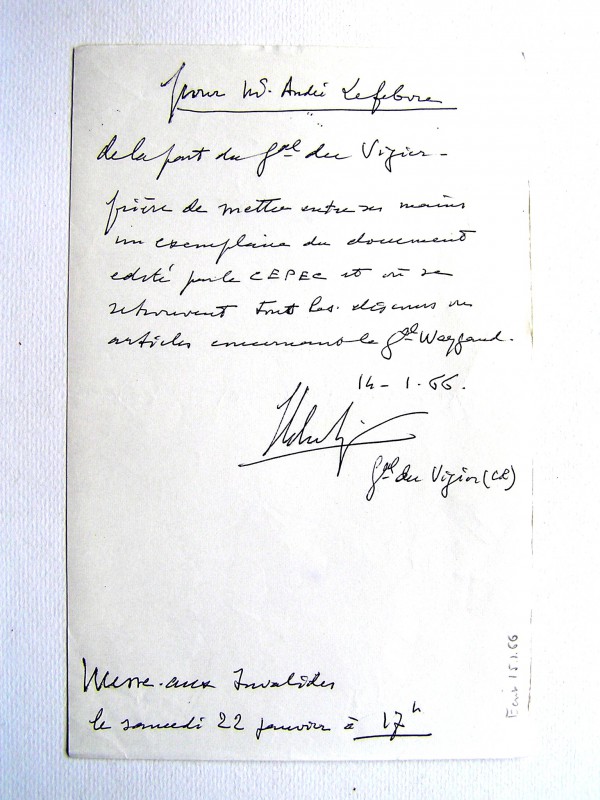 pour M. André Lefebvre
de la part du Gal du Vigier -
prière de mettre entre ses mains
un exemplaire du document
édité par le CEPEC et où se
retrouvent tout les discours ou
articles concernant le Gal Weygand.
14-1.66.
Gal du Vigier (CR)
Messe aux Invalides
le samedi 22 janvier à 17h
15.1.66